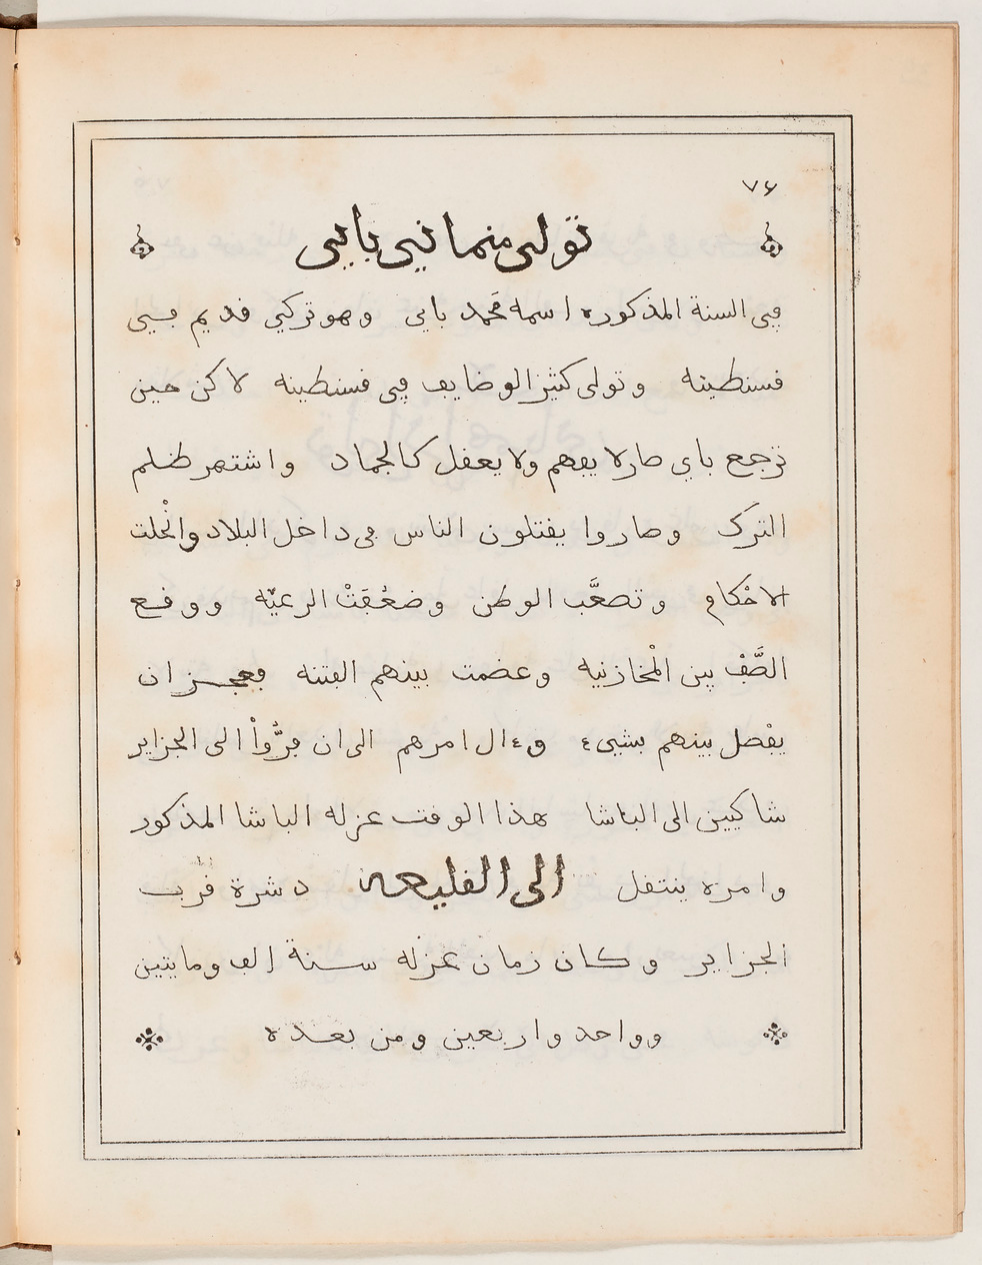 ٧٦
تولى منماني باي
في السنة المذكوره اسمه محمد باي وهو تركي قديم في
قسنطينه وتولى كثير الوضايف في قسنطينه لاكن حين
ترجع باي صار لا يفهم ولا يعقل كالجماد واشتهر ظلم
الترك وصاروا يقتلون الناس في داخل البلاد وانْحلت
الاحْكام وتصعَّب الوطن وضعُفَتْ الرعيّه ووقع
الصَّفْ بين الْمخازنيه وعضمت بينهم الفتنه فعجز ان
يفْصل بينهم بشيء وءال امرهم الى ان فرُّواْ الى الجزاير
شاكيين الى الباشا هذا الوقت عزله الباشا المذكور
وامره ينتقل الى القليعه دشرة قرب
الجزاير وكان زمان عزله سنة الف ومايتين
وواحد واربعين ومن بعده